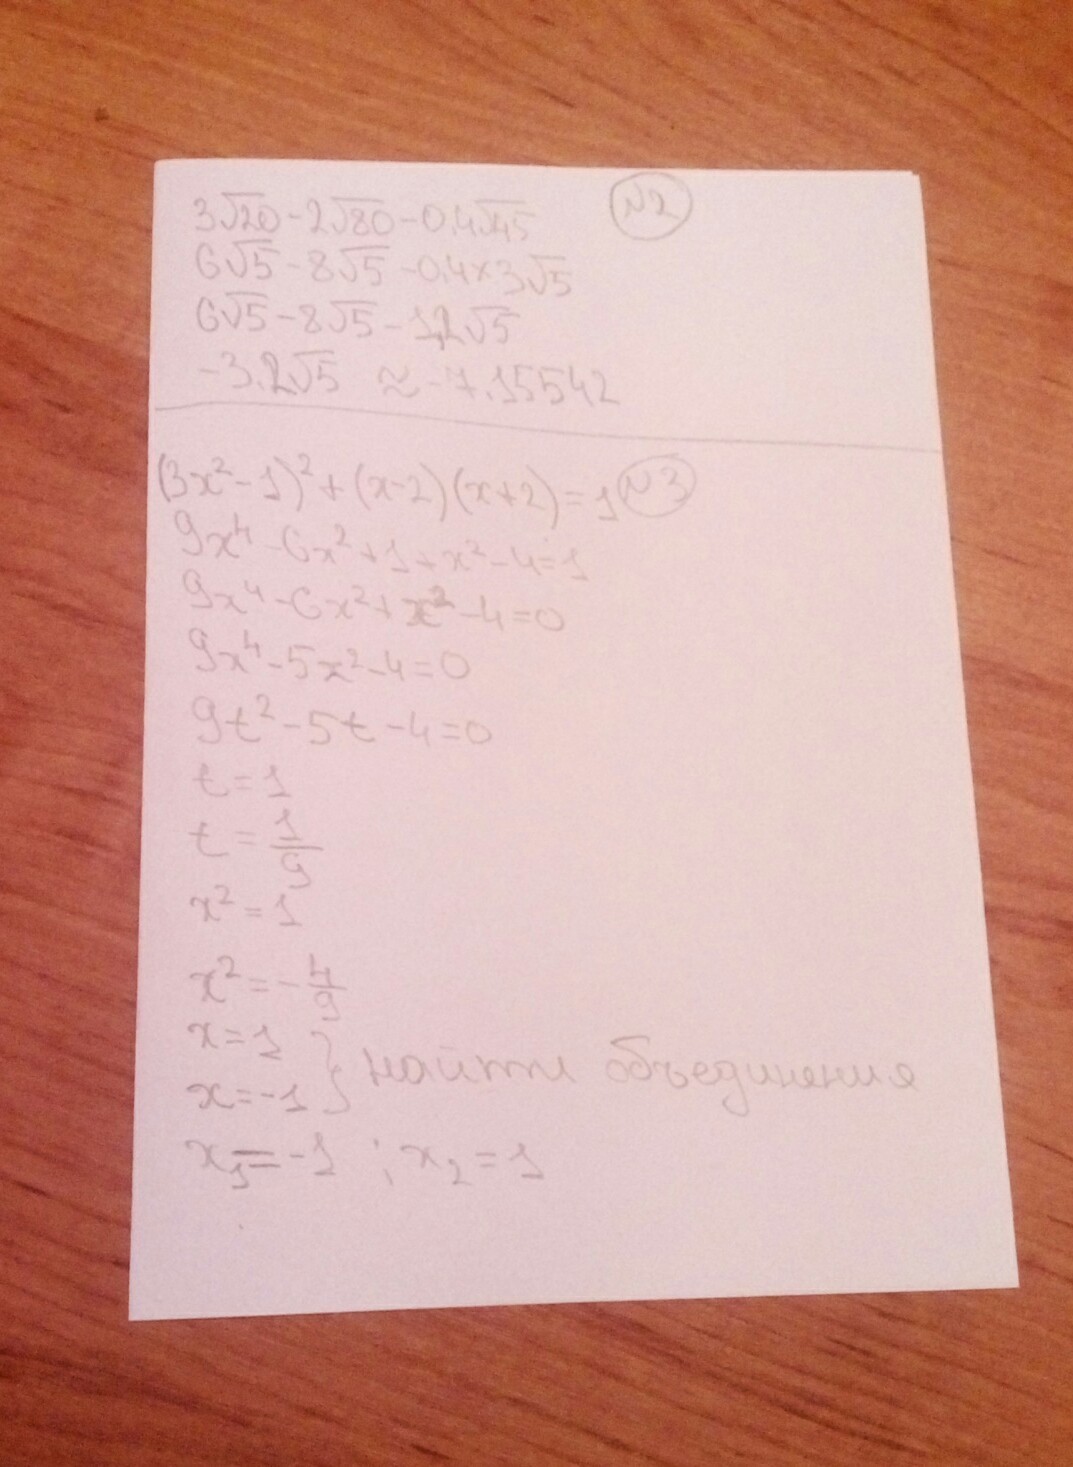 3√20 - 2√80 - 0,4√45 №2
6√5 - 8√5 - 0,4×3√5
6√5 - 8√5 - 1,2√5
-3.2√5 ≈ -7.15542
(3x² - 1)² + (x-2)(x+2) = 1 №3
9x⁴ - 6x² + 1 + x² - 4 = 1
9x⁴ - 6x² + x² - 4 = 0
9x⁴ - 5x² - 4 = 0
9t² - 5t - 4 = 0
t = 1
t = 1/9
x² = 1
x² = -4/9
x = 1 } найти объединения
x = -1
x₁ = -1 ; x₂ = 1